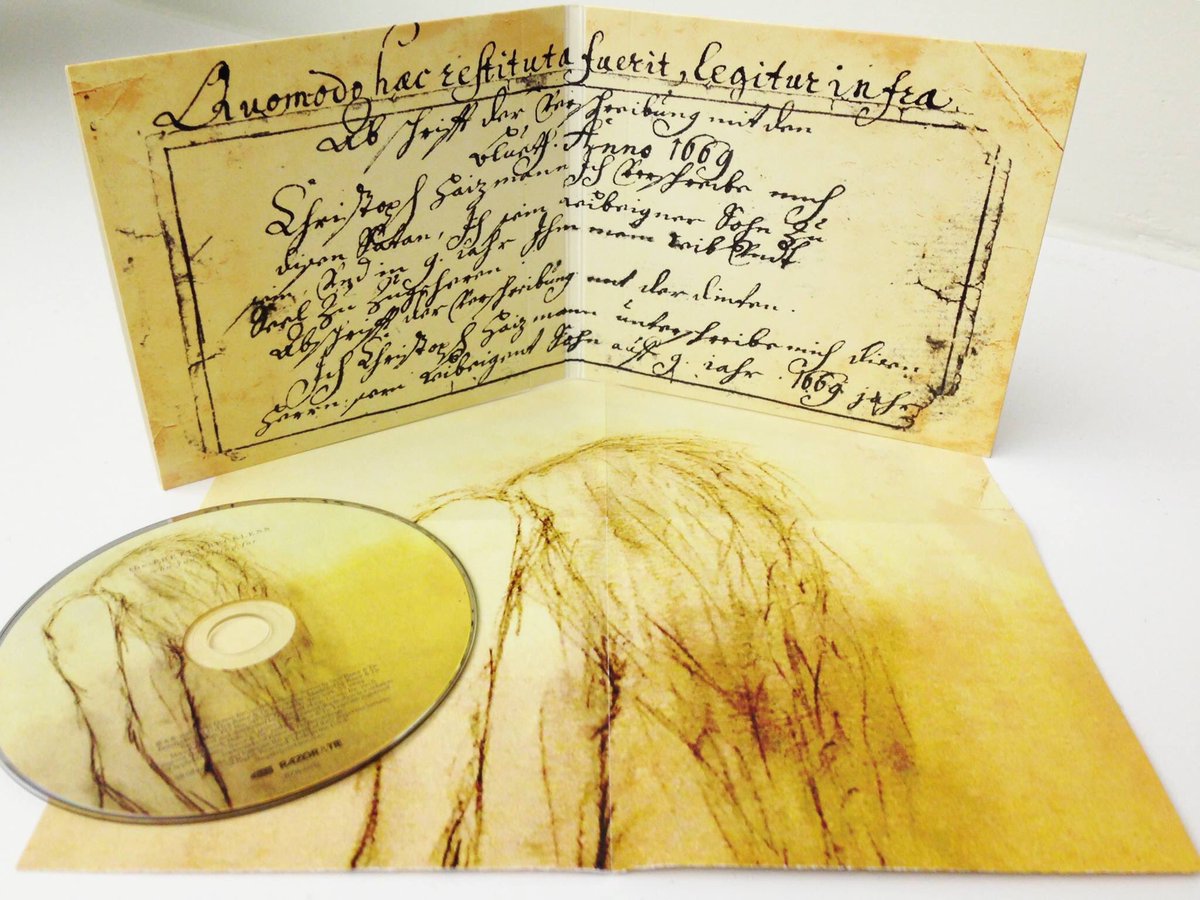 Quomodo hæc restituta fuerit, legitur infra.
Abschrifft der Verschreibung mit dem
bluett. Anno 1669
Christoph Haizmann Ich Verschreibe mich
disen Satan, Ich sein leibeigner Sohn zu
sein, Und in 9. iahr Ihm mein leib Undt
Seel zu zugeheren.
Abschrifft der Verschreibung mit der dinten.
Ich Christoph Haizmann unterschreibe mich disen
Herrn, sein leibeigent Sohn auff 9. iahr. 1669 jahr
RAZOR & TIE